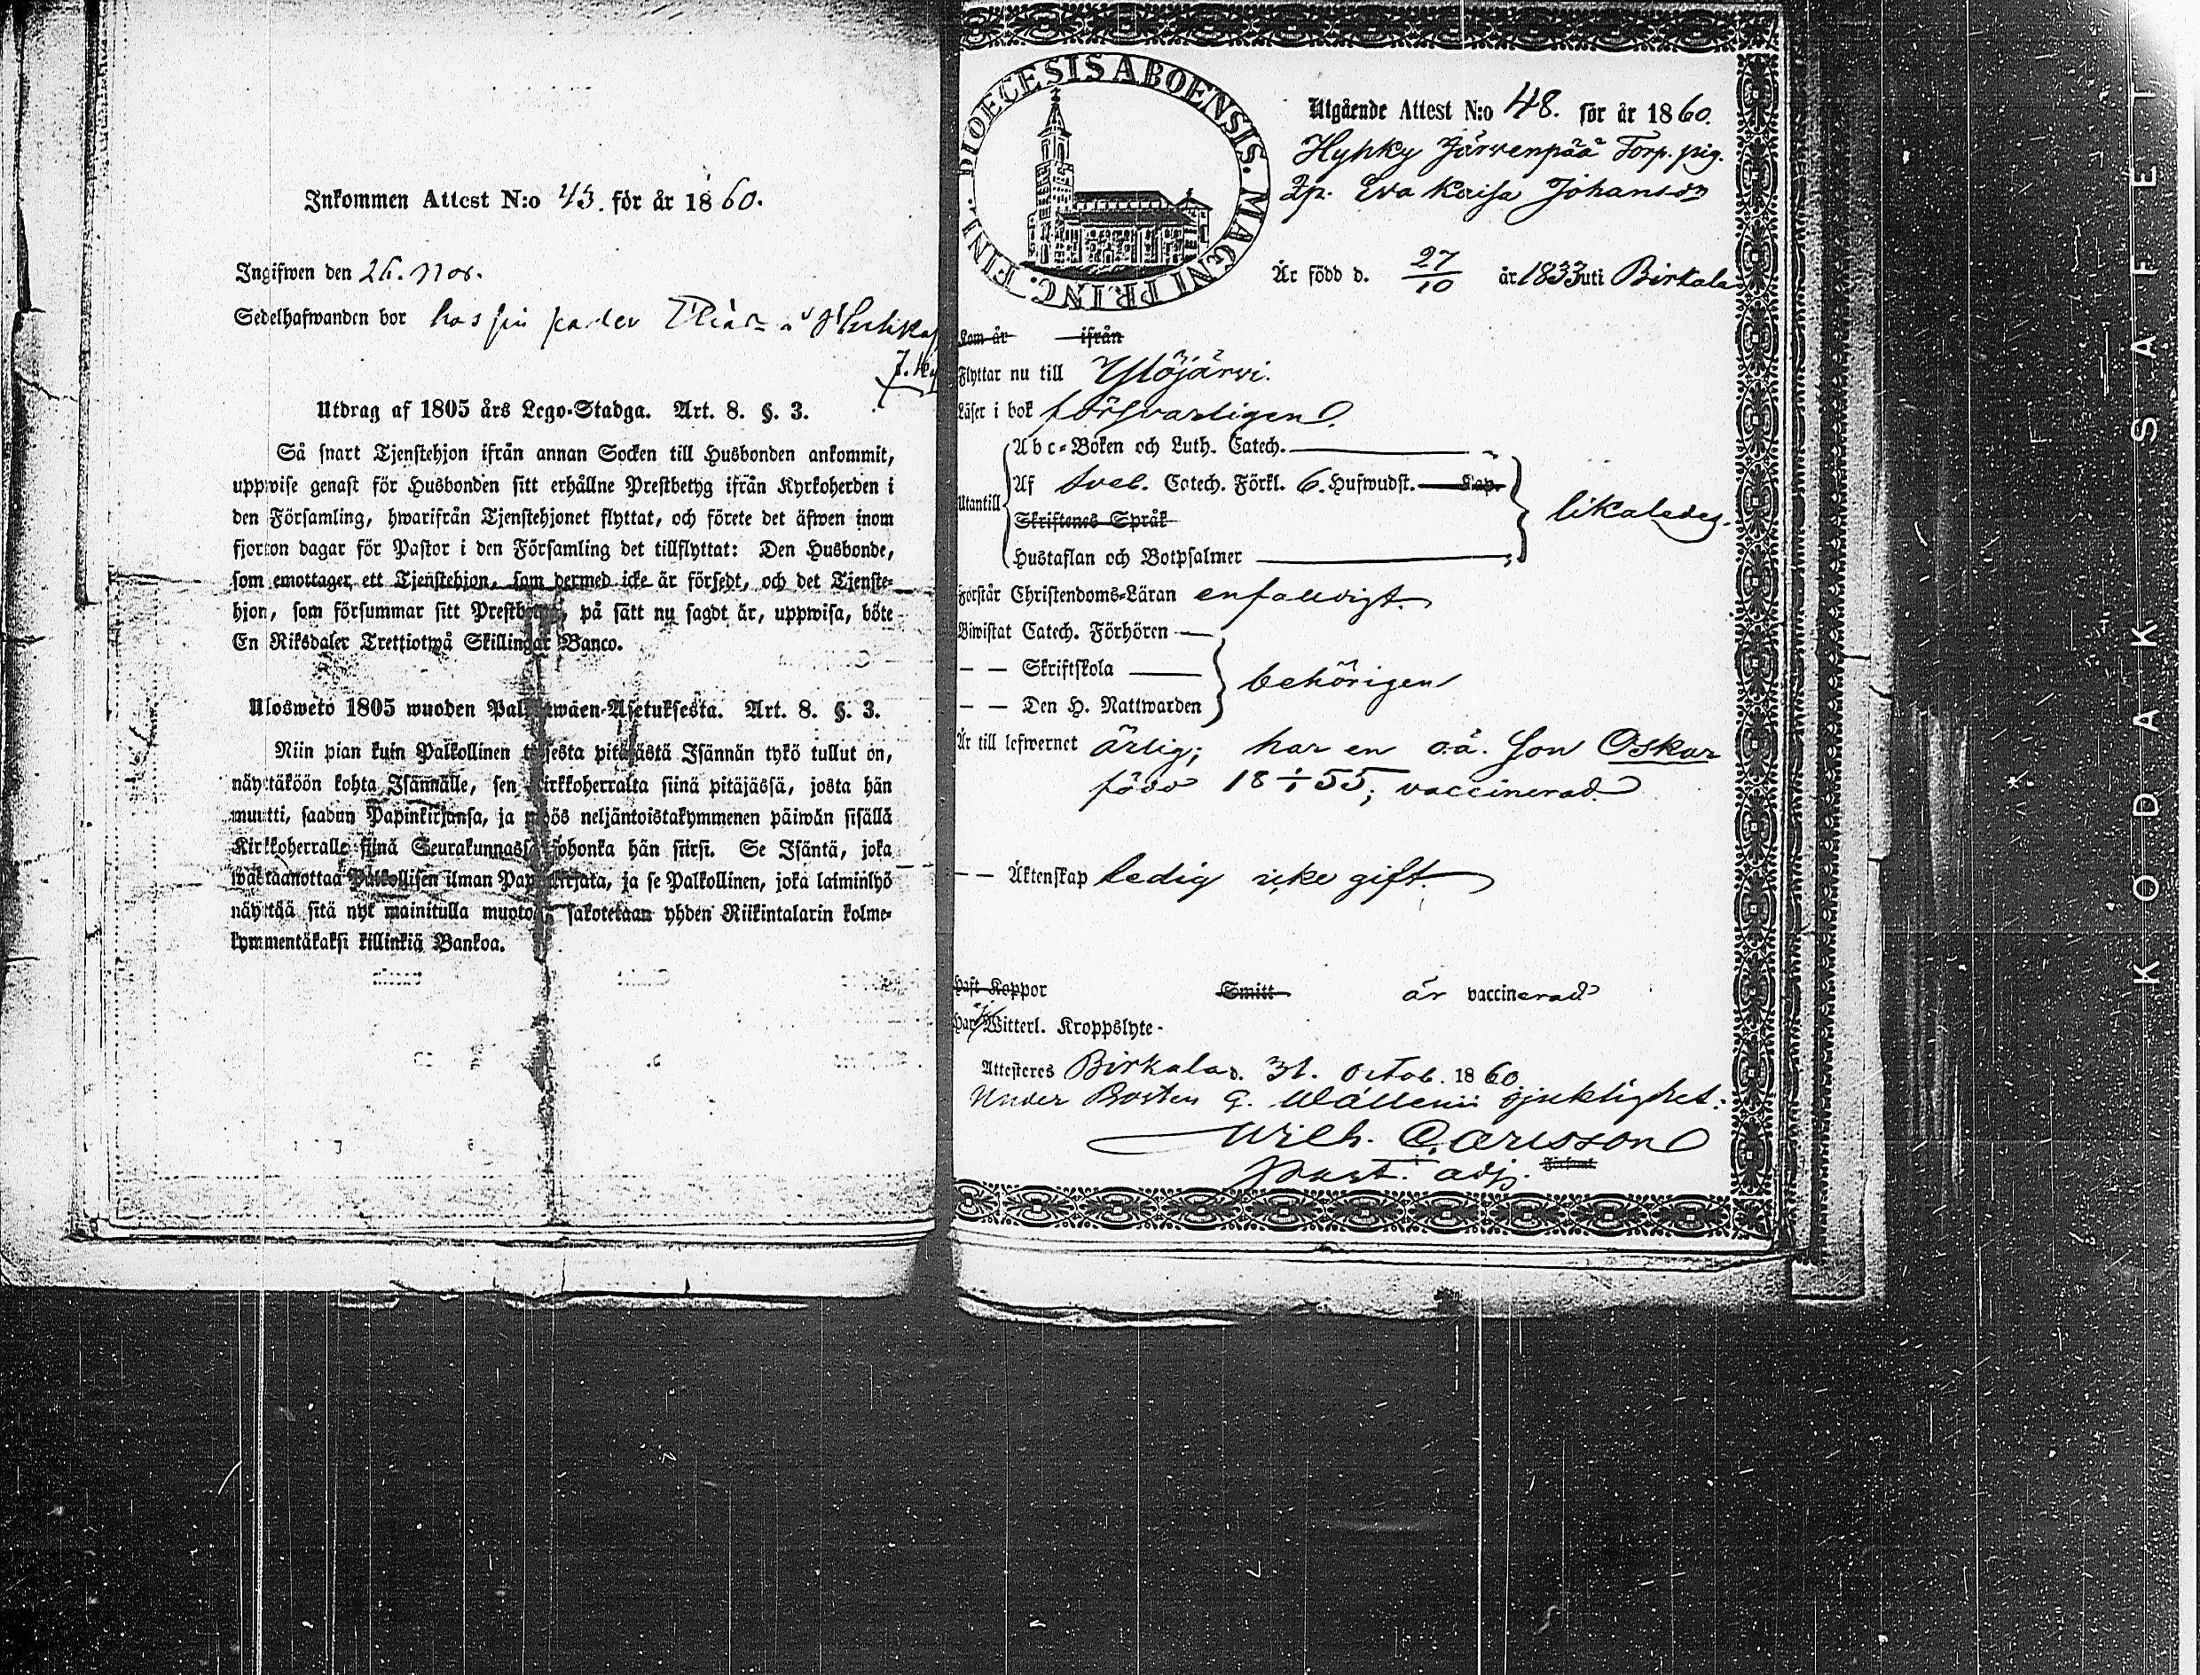 Inkommen Attest N:o 43. för år 1860.
Ingifwen den 26. Nov.
Sedelhafwanden bor hos sin fader
Utdrag af 1805 års Lego-Stadga. Art. 8. §. 3.
Så snart Tjenstehjon ifrån annan Socken till Husbonden ankommit,
uppwise genast för Husbonden sitt erhållne Prestbetyg ifrån Kyrkoherden i
den Församling, hwarifrån Tjenstehjonet flyttat, och förete det äfwen inom
fjorton dagar för Pastor i den Församling det tillflyttat: Den Husbonde,
som emottager ett Tjenstehjon, som dermed icke är försedt, och det Tjenste-
hjon, som försummar sitt Prestbetyg, på sätt nu sagdt är, uppwisa, böte
En Riksdaler Trettiotwå Skillingar Banco.
Ulosweto 1805 wuoden Palkkawäen-Asetuksesta. Art. 8. §. 3.
Niin pian kuin Palkollinen toisesta pitäjästä Isännän tykö tullut on,
näyttäköön kohta Isännälle, sen Kirkkoherralta siinä pitäjässä, josta hän
muutti, saadun Papinkirjansa, ja myös neljäntoistakymmenen päiwän sisällä
Kirkkoherralle siinä Seurakunnassa johonka hän siirsi. Se Isäntä, joka
wastaanottaa Palkollisen ilman Papinkirjata, ja se Palkollinen, joka laiminlyö
näyttää sitä nyt mainitulla muotolla sakotetaan yhden Riikintalarin kolme-
kymmentäkaksi killinkiä Bankoa.
DIOECESIS ABOENSIS. MAGNI PRINC. FINL.
Utgående Attest N:o 48. för år 1860.
Hyhky Järvenpää Torp. pig.
Qp. Eva Kaisa Johansdr
Är född d. 27/10 år 1833 uti Birkala
Kom år ifrån
Flyttar nu till Ylöjärvi.
Läser i bok försvarligen
Abc-Boken och Luth. Catech.
Utantill Af Sveb. Catech. Förkl. 6. Hufwudst. Kap. likaledes.
Skriftenes Språk
Hustaflan och Botpsalmer
Förstår Christendoms-Läran enfaldigt.
Biwistat Catech. Förhören
– – Skriftskola behörigen
– – Den H. Nattwarden
Är till lefwernet ärlig; har en o.ä. Son Oskar
född 18 ÷ 55; vaccinerad.
– – Äktenskap ledig icke gift.
Haft Koppor Smitt är vaccinerad
Har ej Witterl. Kroppslyte-
Attesteres Birkala d. 31. Octob. 1860
Under Posten G. Walleni sjuklighet:
Wilh. Carlsson
Past. adj. Församl.
KODAK SAFET